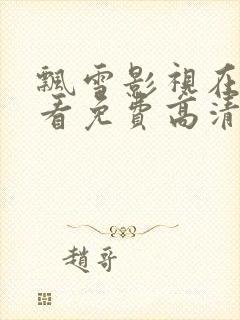 飄雪影視在
看免費高清
趙哥